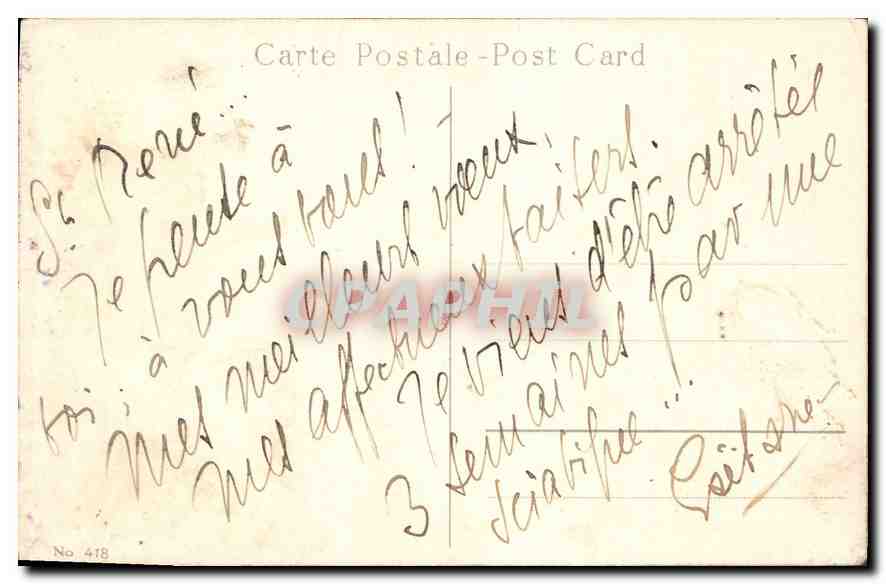 Carte Postale - Post Card
St René...
Je pense à
toi, à vous tous! -
Mes meilleurs vœux,
Mes affectueux baisers.
Je viens d'être arrêtée
3 semaines par une
sciatique...
CPAPHIL
No 418